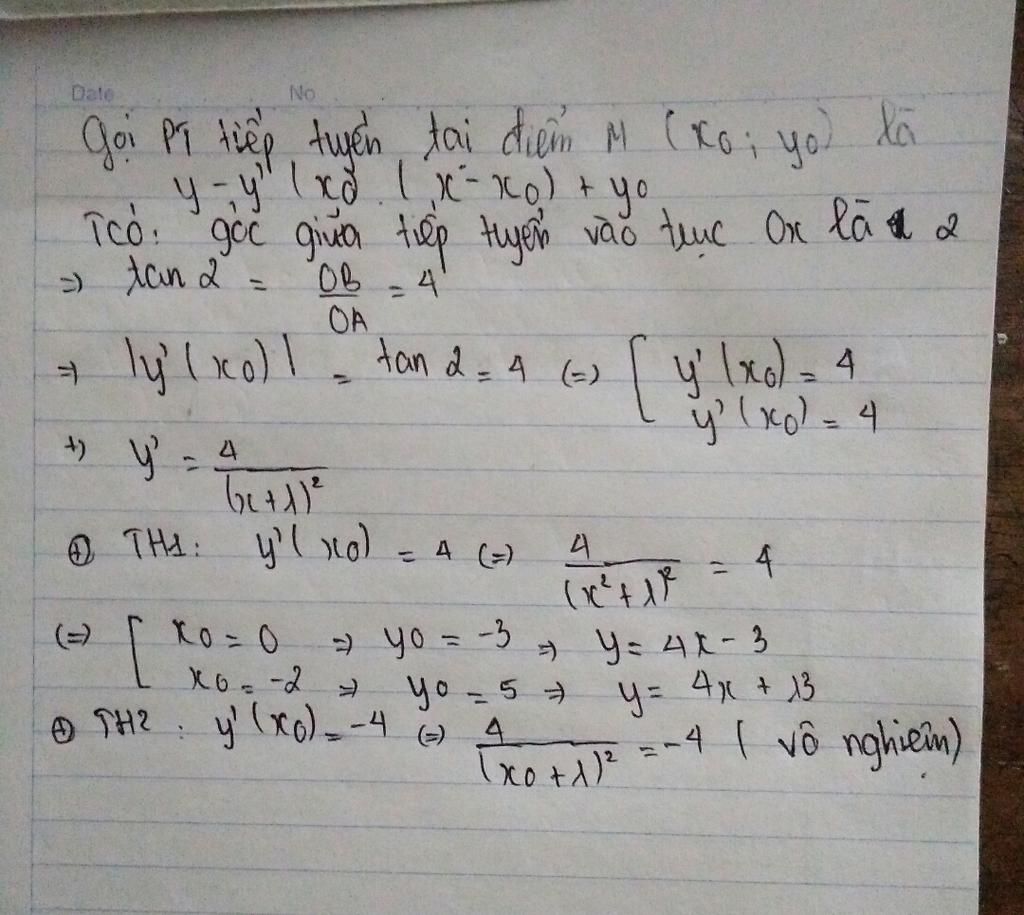 Date No
Gọi PT tiếp tuyến tại điểm M (x0; y0) là
y - y' (x0) . (x - x0) + y0
Tcó: góc giữa tiếp tuyến vào trục Ox là α
=> tan α = OB/OA = 4
=> |y'(x0)| = tan α = 4 (=) [ y'(x0) = 4
y'(x0) = 4
+) y' = 4/(x+1)²
⊕ TH1: y'(x0) = 4 (=) 4/(x²+1)² = 4
(=) [ x0 = 0 => y0 = -3 => y = 4x - 3
x0 = -2 => y0 = 5 => y = 4x + 13
⊕ TH2 : y'(x0) = -4 (=) 4/(x0+1)² = -4 ( vô nghiệm)